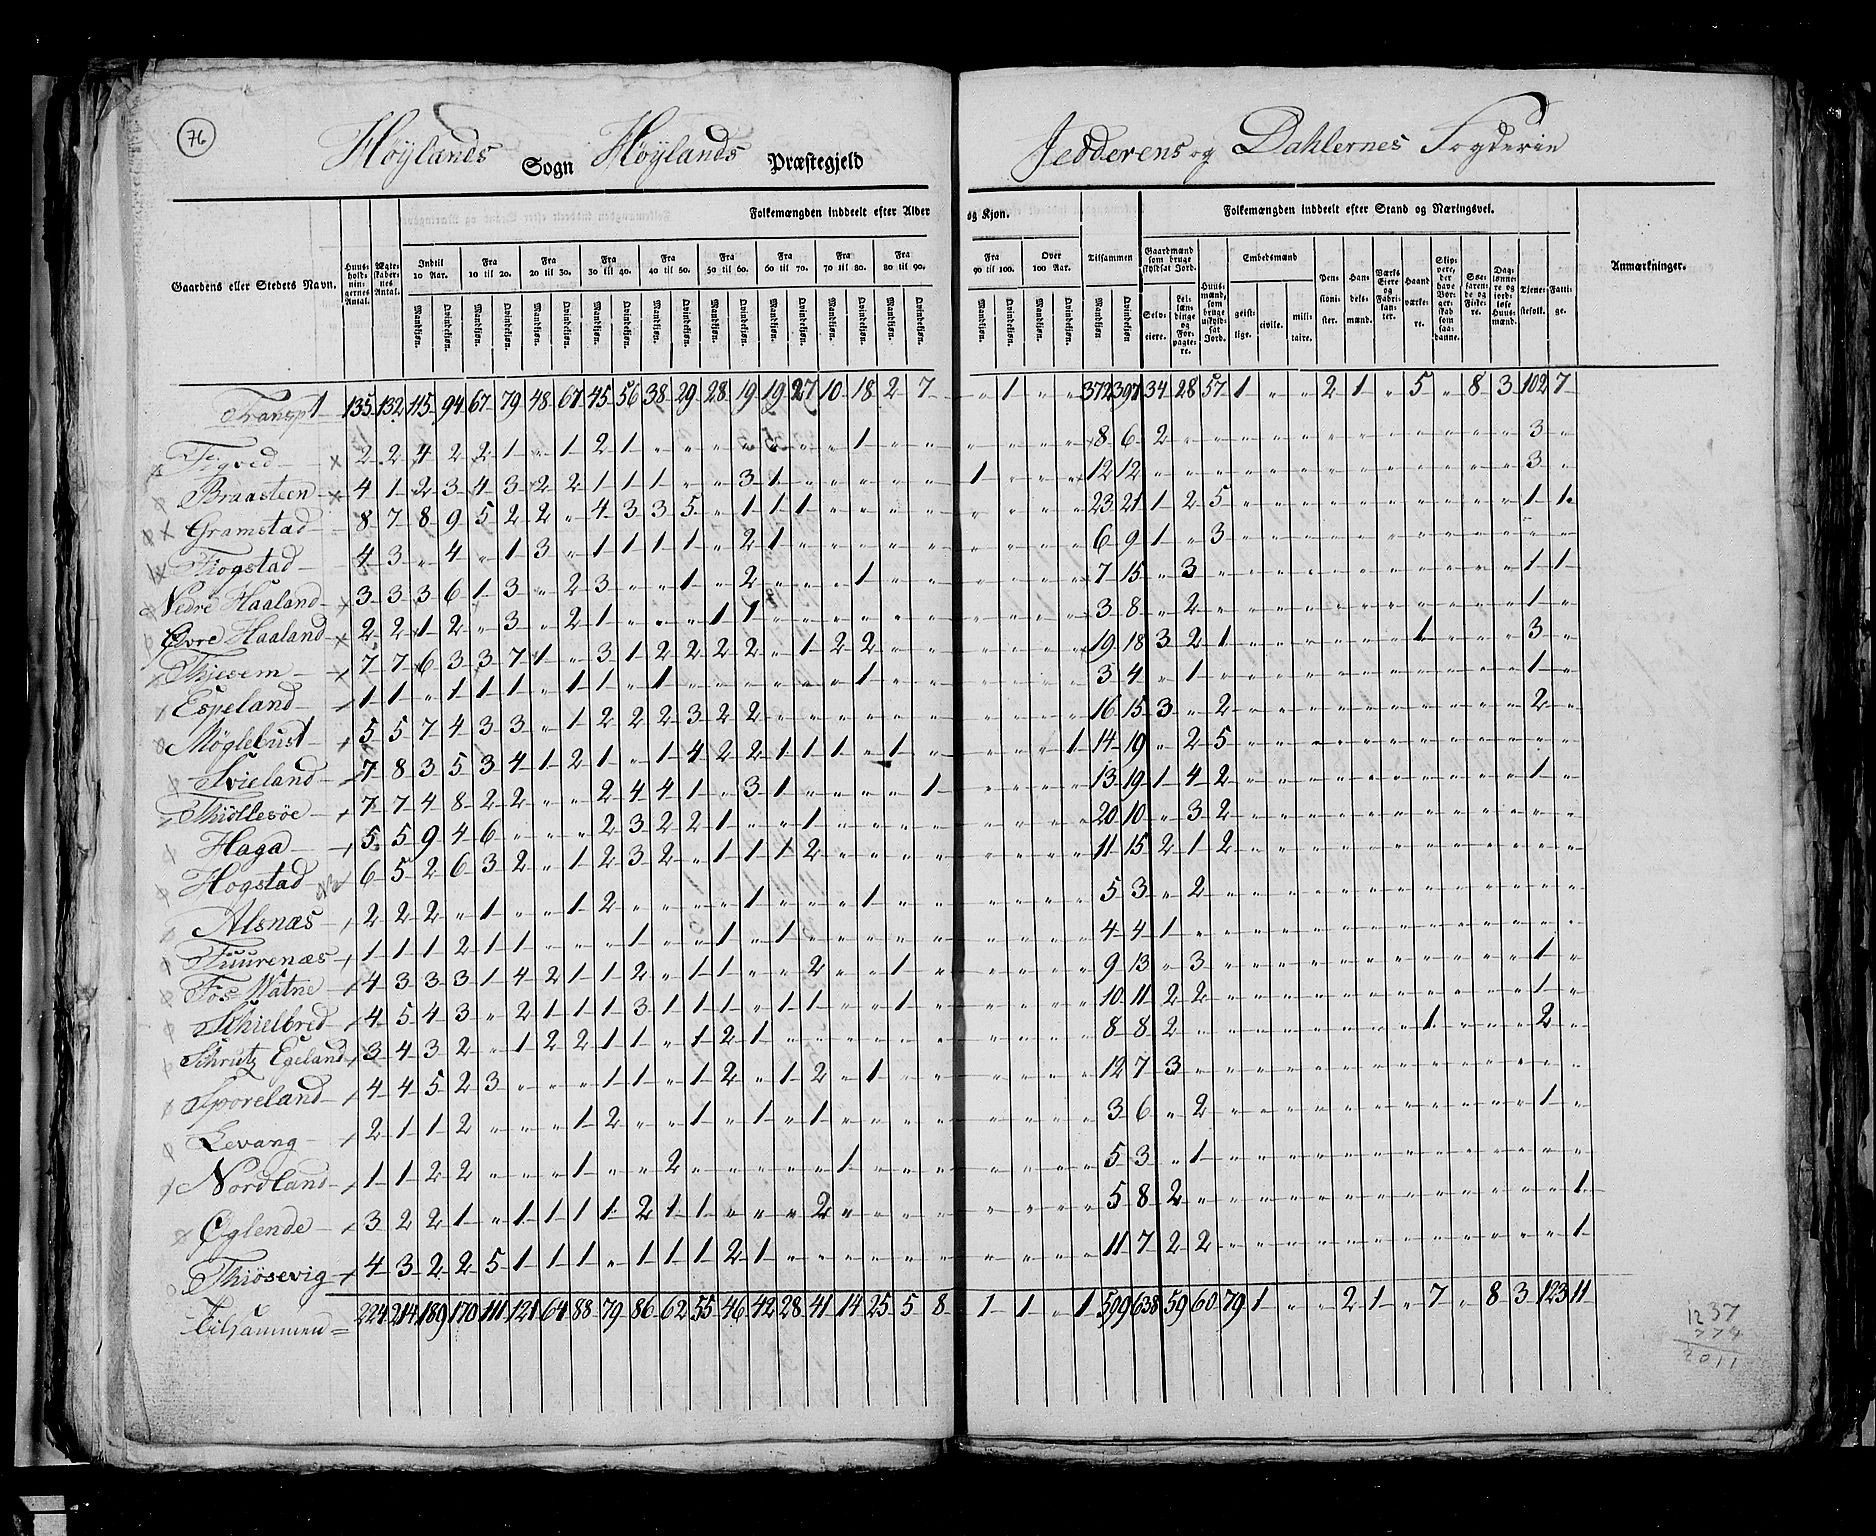 76
Höylands Sogn Höylands Præstegjeld
Jedderens og Dahlernes Fogderie
Folkemængden inddeelt efter Alder og Kjön.
Folkemængden inddeelt efter Stand og Næringsvei.
Gaardens eller Stedets Navn.
Huusholdningernes Antal.
Ægteskabernes Antal.
Indtil 10 Aar.
Fra 10 til 20.
Fra 20 til 30.
Fra 30 til 40.
Fra 40 til 50.
Fra 50 til 60.
Fra 60 til 70.
Fra 70 til 80.
Fra 80 til 90.
Fra 90 til 100.
Over 100 Aar.
Tilsammen
Mandkjön. Qvindekjön.
Gaardmænd som bruge skyldsat Jord.
Selveiere.
Leilændinge og Forpagtere.
Huusmænd, som bruge uskyldsat Jord.
Embedsmænd
geistlige. civile. militaire.
Pensionister.
Handelsmænd.
Værks Eiere og Fabrikanter.
Haandværkere.
Skippere, der have Borgerskab som saadanne.
Søefarende og Fiskere.
Daglönnere og jordløse Huusmænd.
Tjenestefolk.
Fattige.
Anmærkninger.
Transpt 135 132 115 94 67 79 48 67 45 56 38 29 28 19 19 27 10 18 2 7 " 1 " " 372 397 34 28 57 1 " " 2 1 " 5 " 8 3 102 7
Tigved 2 2 4 2 2 1 " 1 2 1 8 6 2 3
Braasteen 4 1 2 3 4 3 2 2 1 1 1 " " 3 1 1 12 12 3
Gramstad 8 7 8 9 5 2 2 " 4 3 3 5 " 1 1 1 23 21 1 2 5 1 1
Fiogstad 4 3 " 4 " 1 3 " 1 1 1 1 " 2 1 6 9 1 " 3
Nedre Haaland 3 3 3 6 1 3 " 2 3 " " 1 " 2 " " " 1 7 15 " 3 1 1
Øvre Haaland 2 2 1 2 " 3 " 2 1 " " " 1 1 3 8 " 2 1
Thjesem 7 7 6 3 3 7 1 " 3 1 2 2 2 2 " 1 2 2 19 18 3 2 1 1 3
Espeland 1 1 " 1 1 1 " 1 1 " 1 1 3 4 " 1 1
Möglebust 5 5 7 4 3 3 " 1 2 2 2 3 2 2 16 15 3 " 2 2
Svieland 7 8 3 5 3 4 1 2 1 " 1 4 2 2 1 1 1 " 1 1 14 19 " 2 5
Thiöllesöe 7 7 4 8 2 2 " " 2 4 4 1 " 3 1 1 13 19 1 4 2 1
Haga 5 5 9 4 6 " " " 2 3 2 2 1 " " 1 20 10 " 3 2
Hogstad 6 5 2 6 3 2 " 1 2 3 2 " 1 1 1 2 11 15 2 1 2
Alsnæs 2 2 2 " 1 " " 1 2 " " " " 1 " " " 1 5 3 " 2
Tuurenæs 1 1 1 2 1 1 " " " 1 " " 1 " 1 4 4 1
Fos Watne 4 3 3 3 1 4 2 1 1 2 " 1 1 " " 2 " " 1 9 13 " 3 1
Schielbred 4 5 4 3 " 2 1 1 1 3 1 1 1 " 1 1 " " 1 10 11 2 2 1
Schrutz Egeland 3 4 3 2 " 1 2 2 1 1 " 1 2 1 8 8 2 1 2
Sporeland 4 4 5 2 3 " " " 1 1 " 1 2 " 1 2 " 1 12 7 3
Levang 2 1 1 2 " " " 1 2 " " 1 " 1 " 1 3 6 " 2 1
Nordland 1 1 2 2 " " " 1 " " 2 " " " " " 1 5 3 " 1
Øglende 3 2 2 1 " 1 1 1 1 2 1 1 " " " 2 5 8 2 1
Thiösevig 4 3 2 2 5 1 1 1 " 1 1 1 2 1 11 7 2 2 1
Tilsammen 224 214 189 170 111 121 64 88 79 86 62 55 46 42 28 41 14 25 5 8 1 1 " 1 599 638 59 60 79 1 " " 2 1 " 7 " 8 3 123 11
1237
774
2011